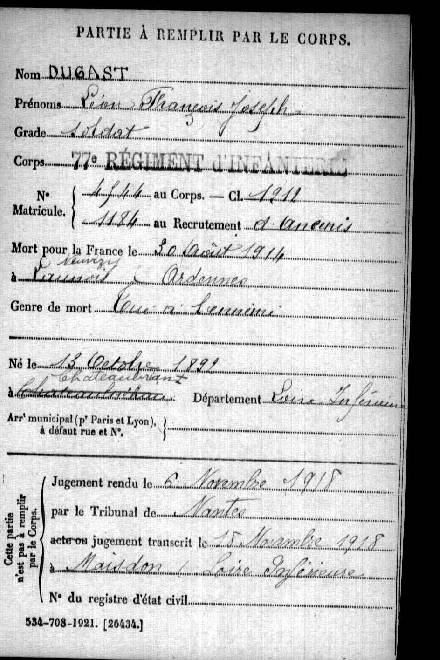 PARTIE À REMPLIR PAR LE CORPS.
Nom DUGAST
Prénoms Léon François Joseph
Grade soldat
Corps 77e RÉGIMENT d'INFANTERIE
N° Matricule. { 4544 au Corps. — Cl. 1912
1184 au Recrutement d'Ancenis
Mort pour la France le 30 Août 1914
Neuvizy
à Launois Ardennes
Genre de mort Tué à l'ennemi
Né le 13 Octobre 1892
Chateaubriant
à Département Loire Inférieure
Arrt municipal (pr Paris et Lyon),
à défaut rue et N°.
Cette partie n'est pas à remplir par le Corps.
Jugement rendu le 6 Novembre 1918
par le Tribunal de Nantes
acte ou jugement transcrit le 15 Novembre 1918
à Moisdon Loire Inférieure
N° du registre d'état civil
534-708-1921. [26434.]